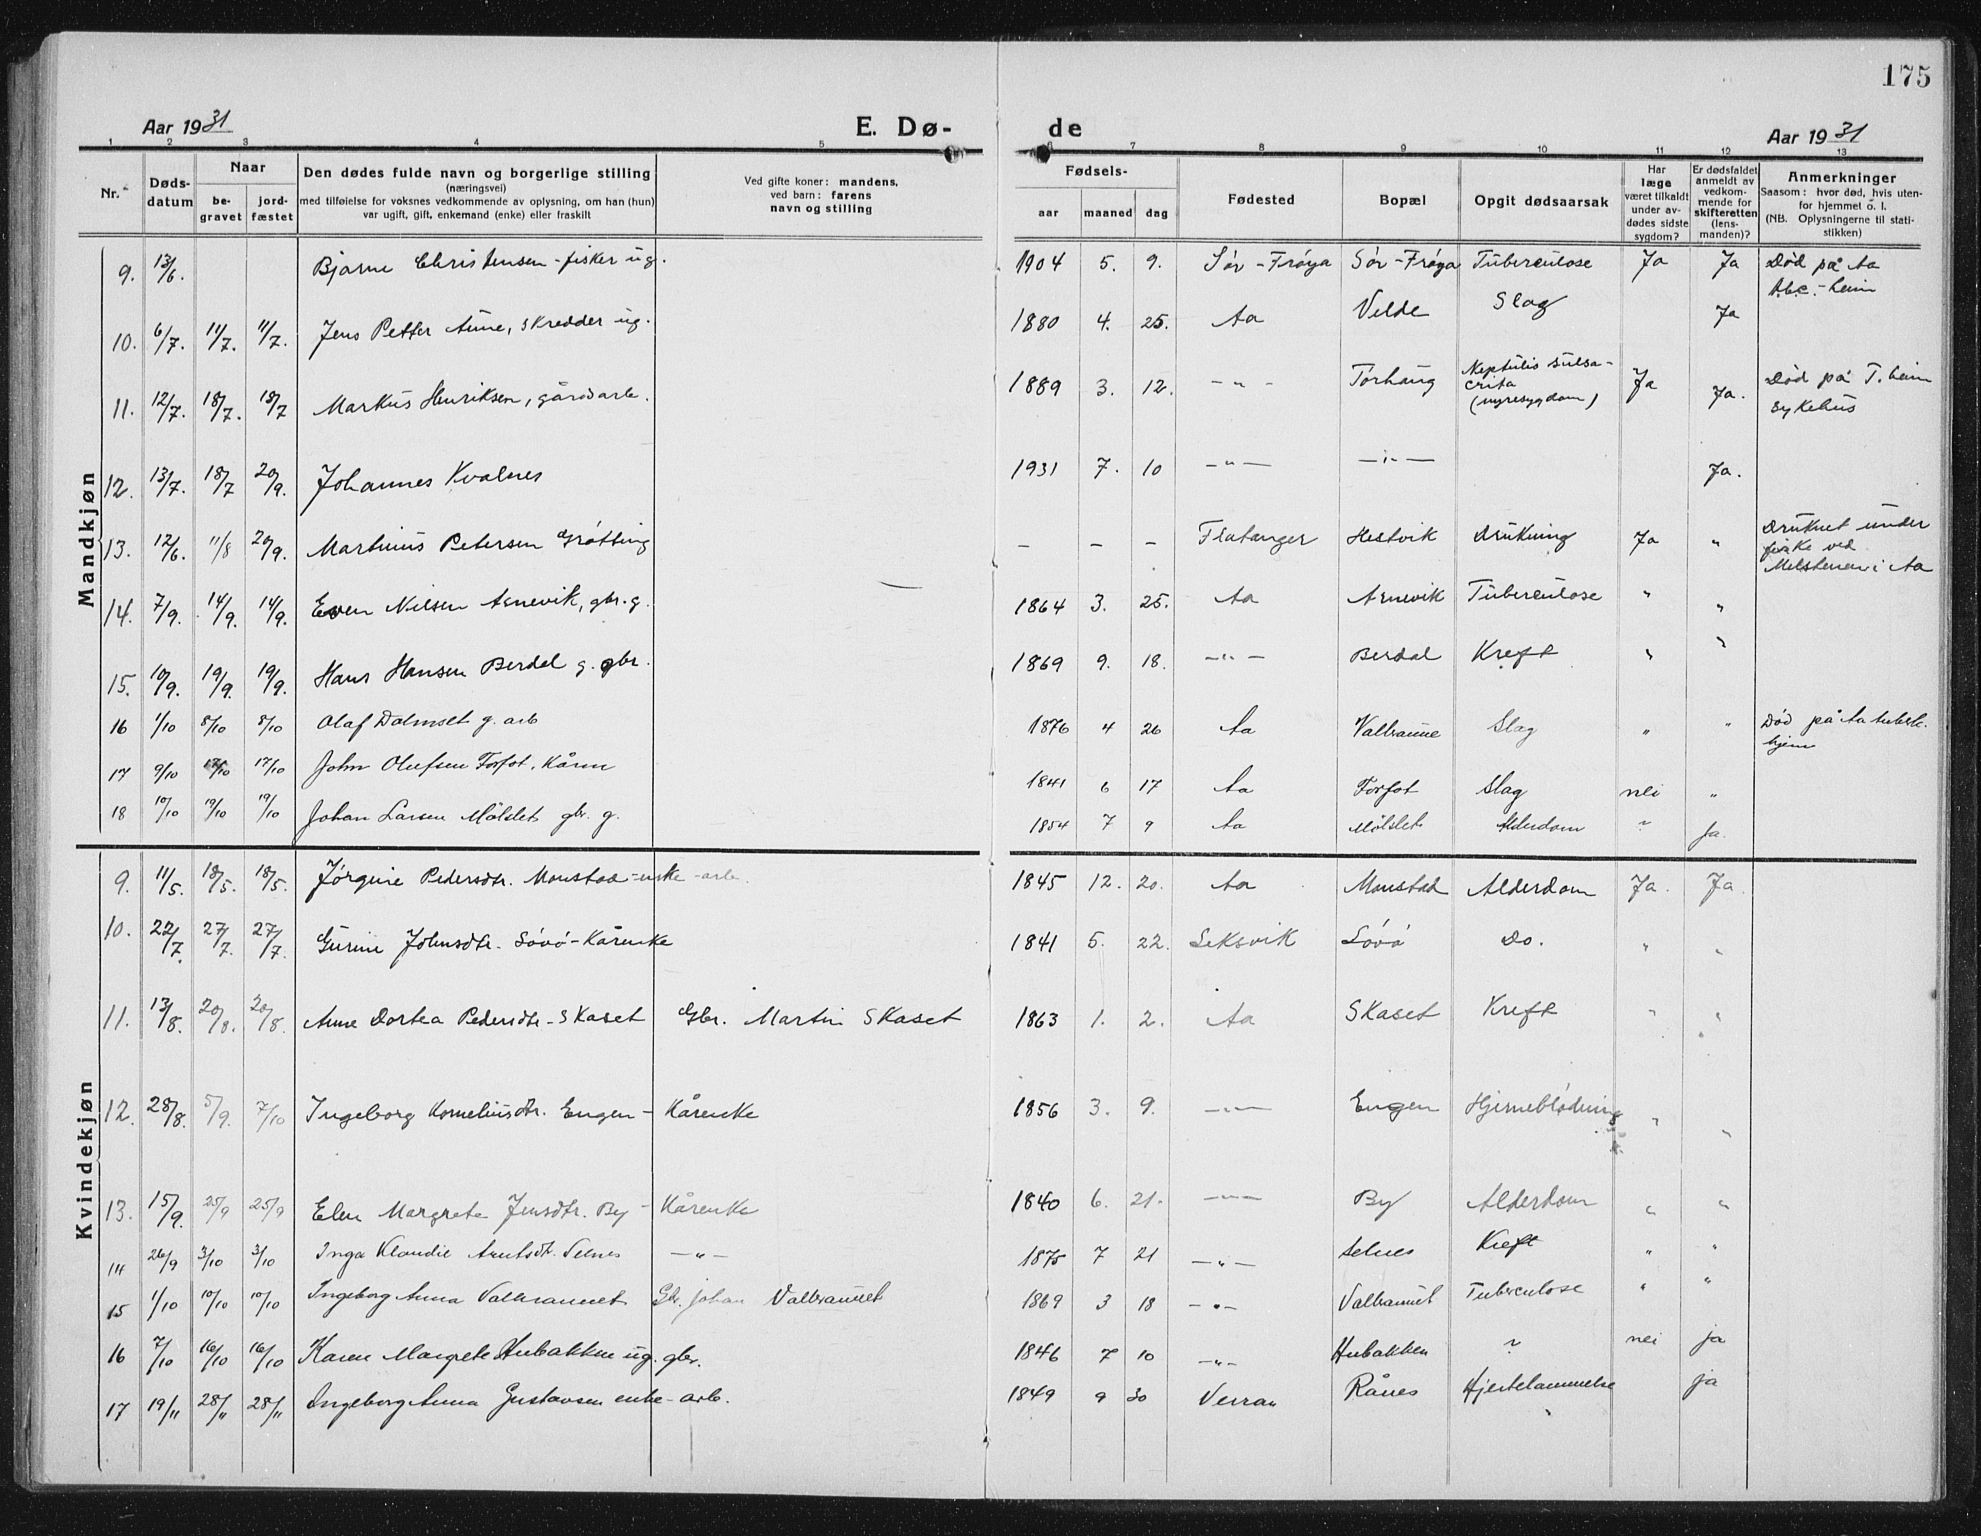 175
Aar 1931
E. Dø-
de
Aar 1931
1 2 3 4 5 6 7 8 9 10 11 12 13
Nr.
Døds-
datum
Naar
be-
gravet
jord-
fæstet
Den dødes fulde navn og borgerlige stilling
(næringsvei)
med tilføielse for voksnes vedkommende av oplysning, om han (hun)
var ugift, gift, enkemand (enke) eller fraskilt
Ved gifte koner: mandens,
ved barn: farens
navn og stilling
Fødsels-
aar maaned dag
Fødested
Bopæl
Opgit dødsaarsak
Har
læge
været tilkaldt
under av-
dødes sidste
sygdom?
Er dødsfaldet
anmeldt av
vedkom-
mende for
skifteretten
(lens-
manden)?
Anmerkninger
Saasom: hvor død, hvis uten-
for hjemmet o. l.
(NB. Oplysningerne til stati-
stikken)
Mandkjøn
9. 13/6. Bjarne Christensen - fisker ug. 1904 5. 9. Sör-Fröya Sör-Fröya Tuberculose Ja Ja Död på Aa
tbc.-heim
10. 6/7. 11/7. 11/7. Jens Petter Aune, skredder ug. 1880 4. 25. Aa Velde Slag Ja
11. 12/7. 18/7. 18/7 Markus Henriksen, gårdarb. 1889 3. 12. -"- Torhaug
(nyresygdom) Ja Ja. Död på T.heim
sykehus
12. 13/7. 18/7 20/9. Johannes Kvalnes 1931 7. 10 -"- -"- Ja.
13. 12/6. 11/8 20/9. Martinus Petersen Grötting - - - Flatanger Hestvik Drukning Ja " Druknet under
fiske ved
Melstenen i Aa
14. 7/9. 14/9. 14/9. Even Nilsen Arnevik, gbr. g. 1864 3. 25. Aa Arnevik Tuberculose " "
15. 10/9. 19/9. 19/9. Hans Hansen Berdal g. gbr. 1869 9. 18. -"- Berdal Kreft " "
16 1/10 8/10 8/10 Olaf Dalmset g. arb 1876 4 26 Aa Valbranne Slag " " Död på Aa tuberk.
hjem
17 9/10 17/10 17/10 John Olufsen Forfot. Kårm 1841 6 17 Aa Forfot Slag nei "
18 10/10 19/10 19/10 Johan Larsen Mölslet gbr. g. 1854 7 9 Aa Mölslet Alderdom " ja.
Kvindekjøn
9. 11/5. 18/5. 18/5. Jörgine Pedersdtr. Monstad - enke - arb. 1845 12. 20. Aa Monstad Alderdom Ja. Ja.
10. 22/7. 27/7. 27/7. Gurine Johnsdtr. Lövö - Kårenke 1841 5. 22. Leksvik Lövö Do. " "
11. 13/8. 20/8. 20/8. Anne Dortea Pedersdtr - Skaset Gbr. Martin Skaset 1863 1. 2. Aa Skaset Kreft " "
12. 28/8. 5/9. 7/10 Ingeborg Korneliusdtr. Engen - Kårenke 1856 3. 9. -"- Engen Hjerneblödning " "
13. 15/9. 25/9 25/9 Elen Margrete Jensdtr. By - Kårenke 1840 6. 21. -"- By Alderdom " "
14 26/9 3/10 3/10 Inga Klaudie Arntsdt. Selnes -"- 1875 7 21 -"- Selnes Kreft " "
15 1/10 10/10 10/10 Ingeborg Anna Valbrannet Gbr. Johan Valbrannet 1869 3 18 -"- Valbrannet Tuberculose " "
16 7/10 16/10 16/10 Karen Margrete Hubakken ug. gbr. 1846 7 10 -"- Hubakken ? nei ja
17 19/11 28/11 28/11 Ingeborg Anna Gustavsen enke - arb. 1849 9 30 Verran Rånes Hjertelammelse ja